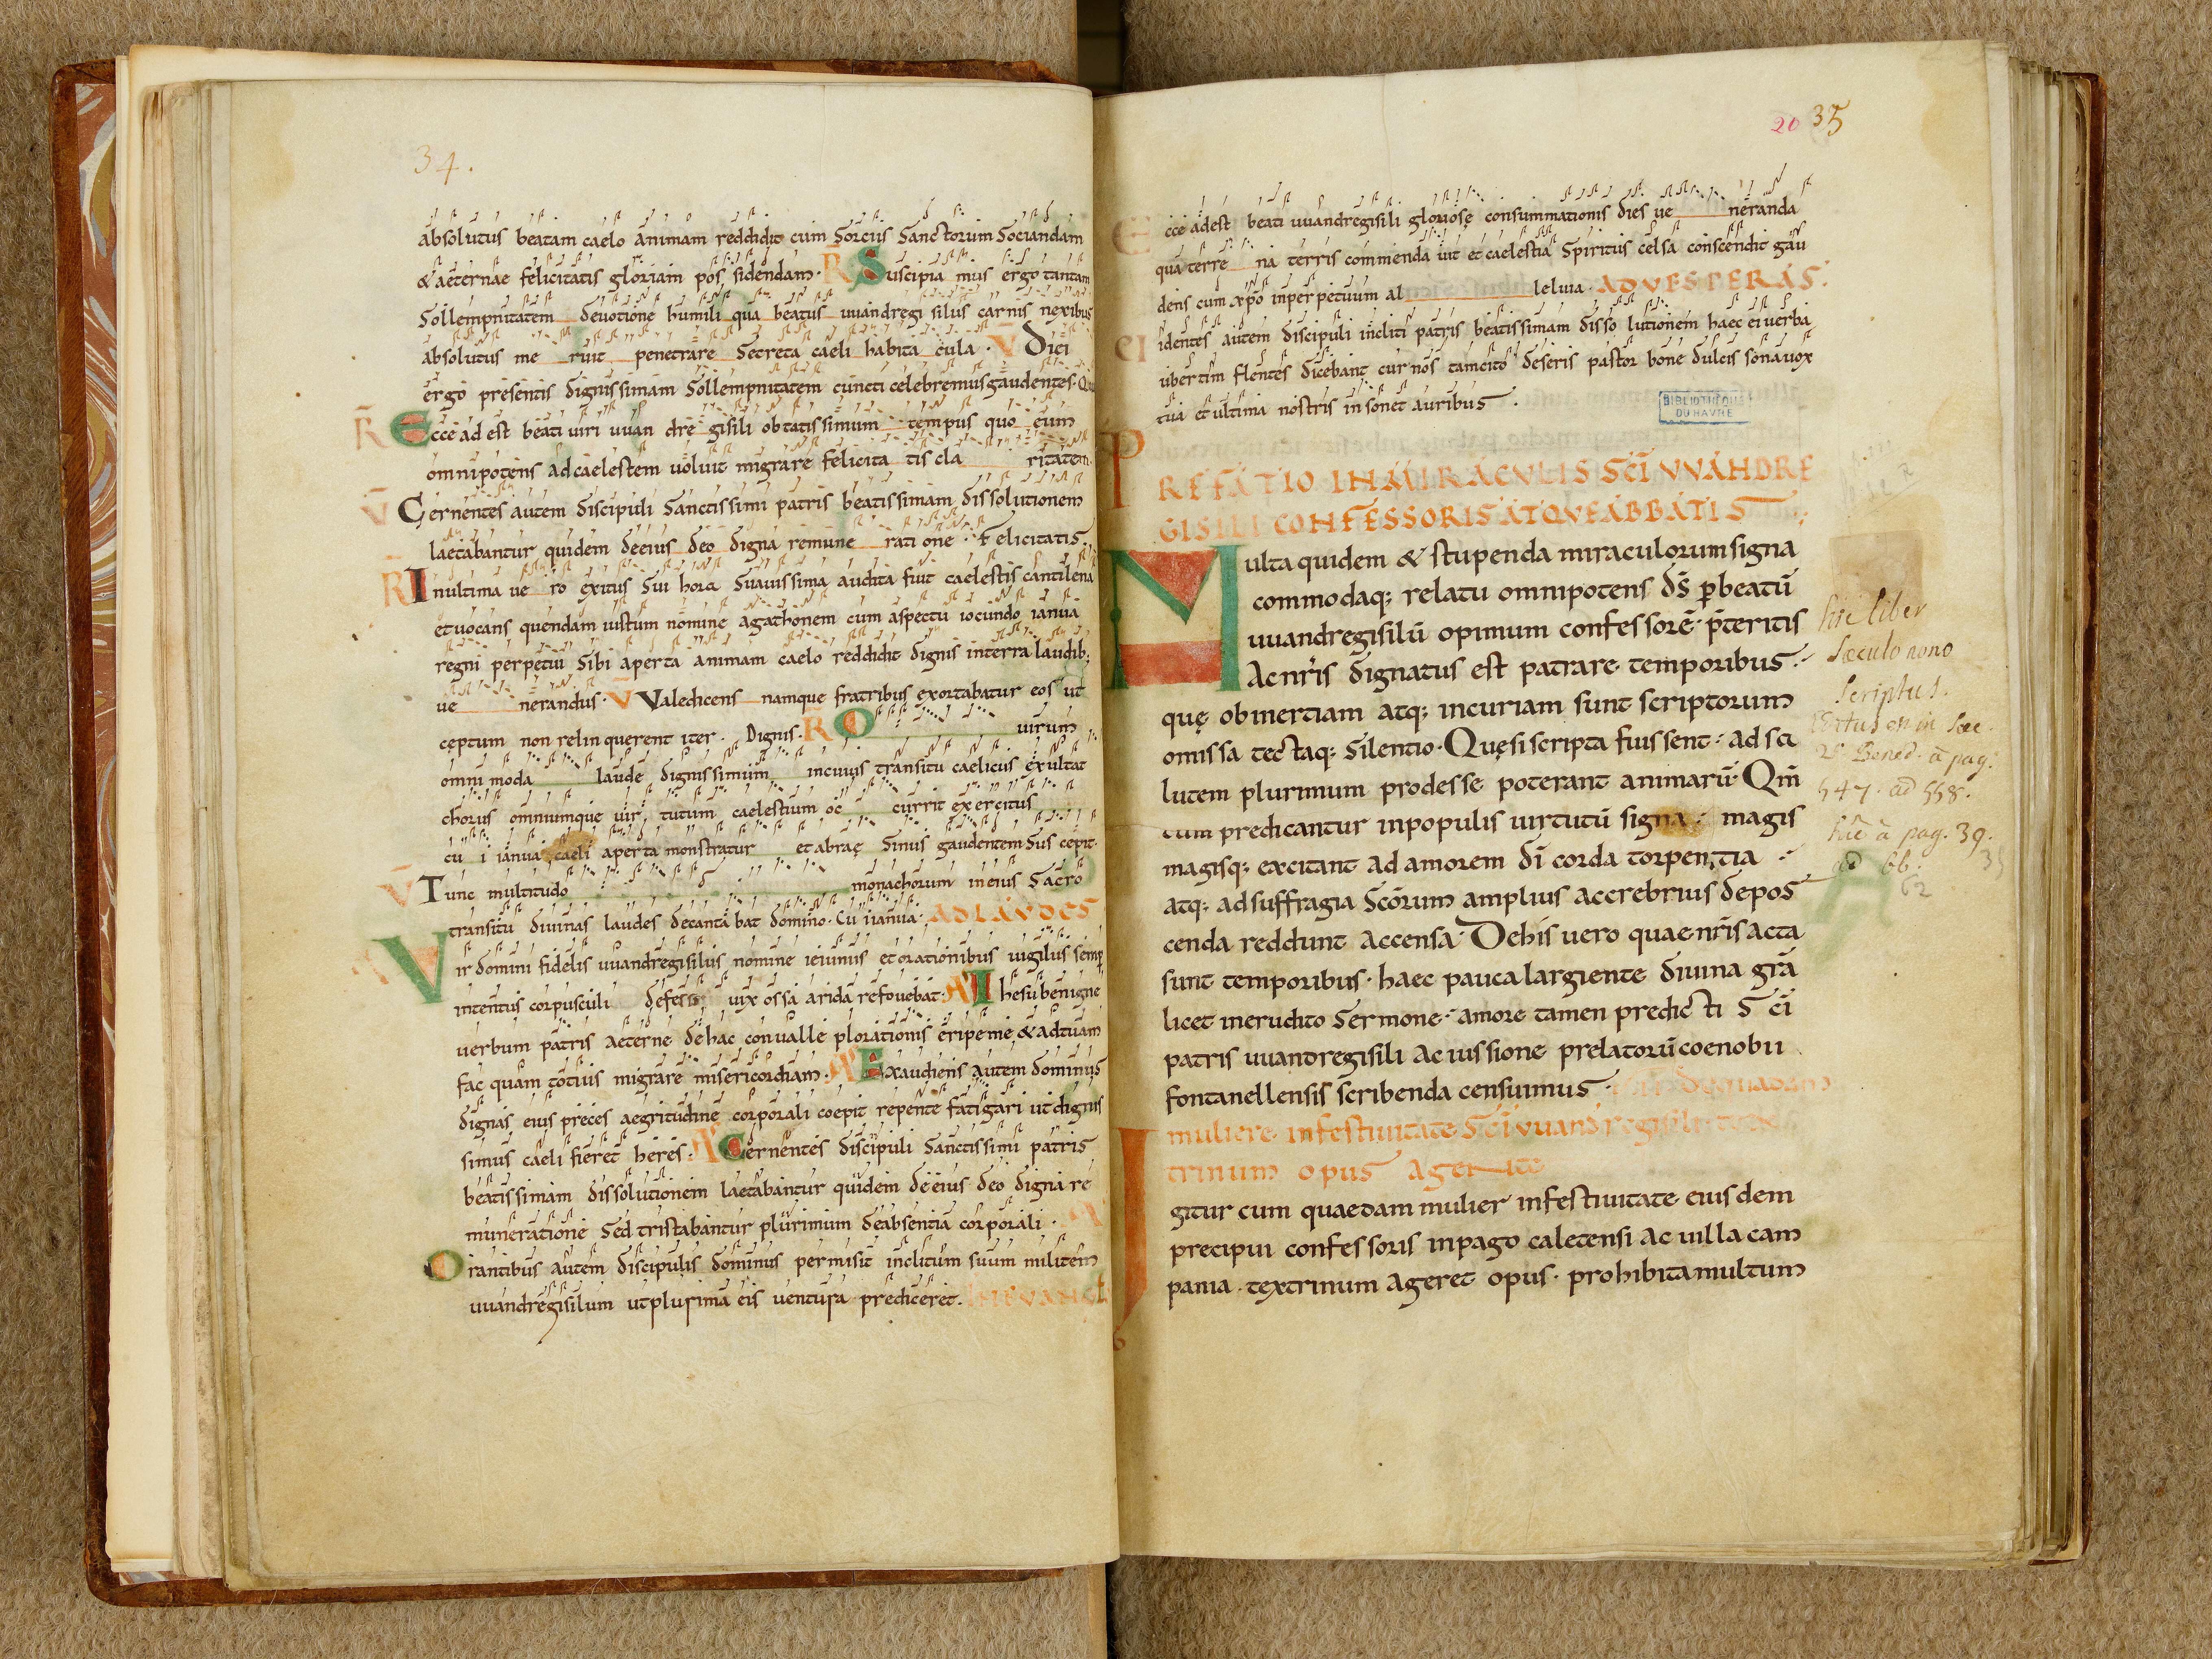 34.
absolutus beatam caelo animam reddidit cum sorciis sanctorum sociandam
& aeternae felicitatis gloriam pos sidendam· R Suscipia mus ergo tantam
sollempnitatem devotione humili qua beatus uuandregi silus carnis nexibus
absolutus me ruit penetrare secreta caeli habita cula · V Diei
ergo presentis dignissimam sollempnitatem cuncti celebremus gaudentes· Qu
R Ecce ad est beati uiri uuan dre gisili obtatissimum tempus quo eum
omnipotens ad caelestem uoluit migrare felicita tis cla ritatem
V Cernentes autem discipuli sanctissimi patris beatissimam dissolutionem
laetabantur quidem de eius deo digna remune rati one · Felicitatis
R In ultima ue ro exitus sui hora suauissima audita fuit caelestis cantilena
et uocans quendam iustum nomine agathonem cum aspectu iocundo ianua
regni perpetui sibi aperta animam caelo reddidit dignis in terra laudib;
ue nerandus· V Valedicens namque fratribus exortabatur eos ut
ceptum non relin querent iter . Dignis· R O uirum
omni moda laude dignissimum in cuius transitu caelicus exultat
chorus omniumque uir tutum caelestium oc currit exercitus
cu i ianua caeli aperta monstratur et abrae sinus gaudentem sus cepit·
V Tunc multitudo monachorum in eius sacro
transitu diuinas laudes decanta bat domino· Cu i ianua· AD LAVDES
Vir domini fidelis uuandregisilus nomine ieiuniis et orationibus uigiliis semp
intentus corpusculi defessi uix ossa arida refouebat· A Ihesu benigne
uerbum patris aeterne de hac conualle plorationis eripe me & ad tuam
fac quam totius migrare misericordiam· A Exaudiens autem dominus
dignas eius preces aegritudine corporali coepit repente fatigari ut dignis
simus caeli fieret heres· A Cernentes discipuli sanctissimi patris
beatissimam dissolutionem laetabantur quidem de eius deo digna re
muneratione sed tristabantur plurimum de absentia corporali · A
Orantibus autem discipulis dominus permisit inclitum suum militem
uuandregisilum ut plurima eis uentura prediceret. IN EVANGL
20 35
Ecce adest beati uuandregisili gloriosę consummationis dies ue neranda
qua terre na terris commenda uit et caelestia spiritus celsa conscendit gau
dens cum xpo in perpetuum al leluia · AD VESPERAS·
Videntes autem discipuli incliti patris beatissimam disso lutionem haec ei uerba
ubertim flentes dicebant cur nos tam cito deseris pastor bone dulcis sona uox
tua et ultima nostris in sonet auribus ·
BIBLIOTHÈQUE
DU HAVRE
PREFATIO IN MIRACVLIS SCI VVANDRE
GISILI CONFESSORIS ATQVE ABBATIS
Multa quidem & stupenda miraculorum signa
commodaq; relatu omnipotens ds p beatu
uuandregisilu opimum confessore· pteritis
Ac nris dignatus est patrare temporibus·
quę ob inertiam atq; incuriam sunt scriptorum
omissa tectaq; silentio· Quę si scripta fuissent· ad sa
lutem plurimum prodesse poterant animaru· Qm
cum predicantur in populis uirtutu signa · magis
magisq; excitant ad amorem di corda torpentia ·
atq; ad suffragia scorum amplius ac crebrius depos
cenda reddunt accensa· De his uero quae nris acta
sunt temporibus· haec pauca largiente diuina gra
licet inerudito sermone· amore tamen predicti sci
patris uuandregisili ac iussione prelatoru coenobii
fontanellensis scribenda censuimus · De quadam
muliere in festiuitate sci uuandregisili tex
trinum opus agente
Igitur cum quaedam mulier in festiuitate eiusdem
precipui confessoris in pago caletensi ac uilla cam
pania · textrinum ageret opus · prohibita multum
hic liber
sæculo nono
scriptus.
Editus est in sæc
2º Bened. à pag.
547. ad 558.
hîc à pag. 39.
ad 66.
62